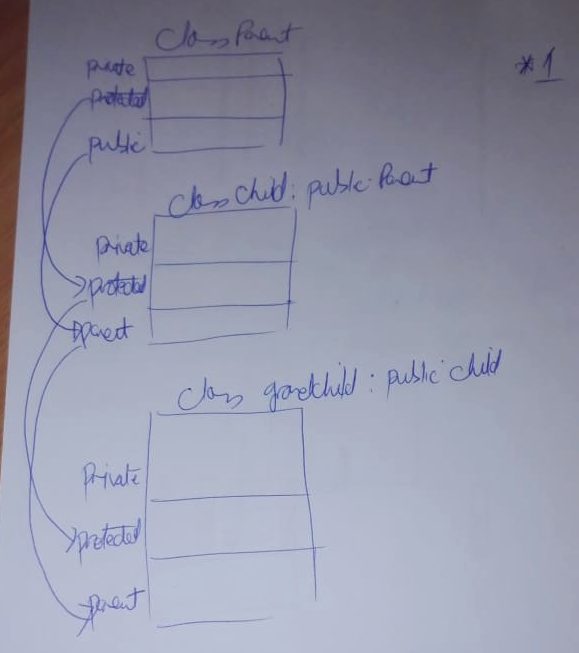 class Parent
private
*1
protected
public
class Child: public Parent
Private
protected
parent
class grandchild: public child
Private
protected
parent